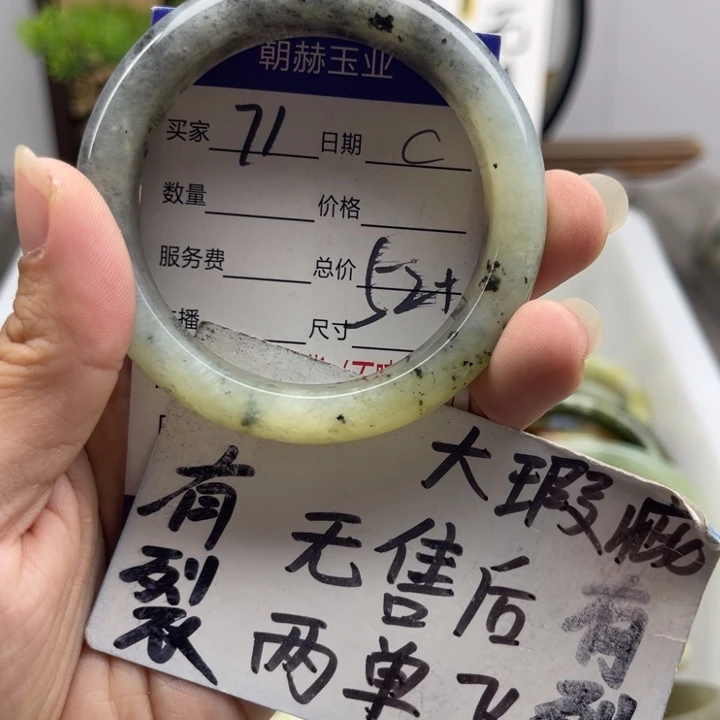 朝赫玉业
买家 71 日期 C
数量 价格
服务费 总价 52+
播 尺寸
大瑕疵
有裂
无售后
有裂
两单飞